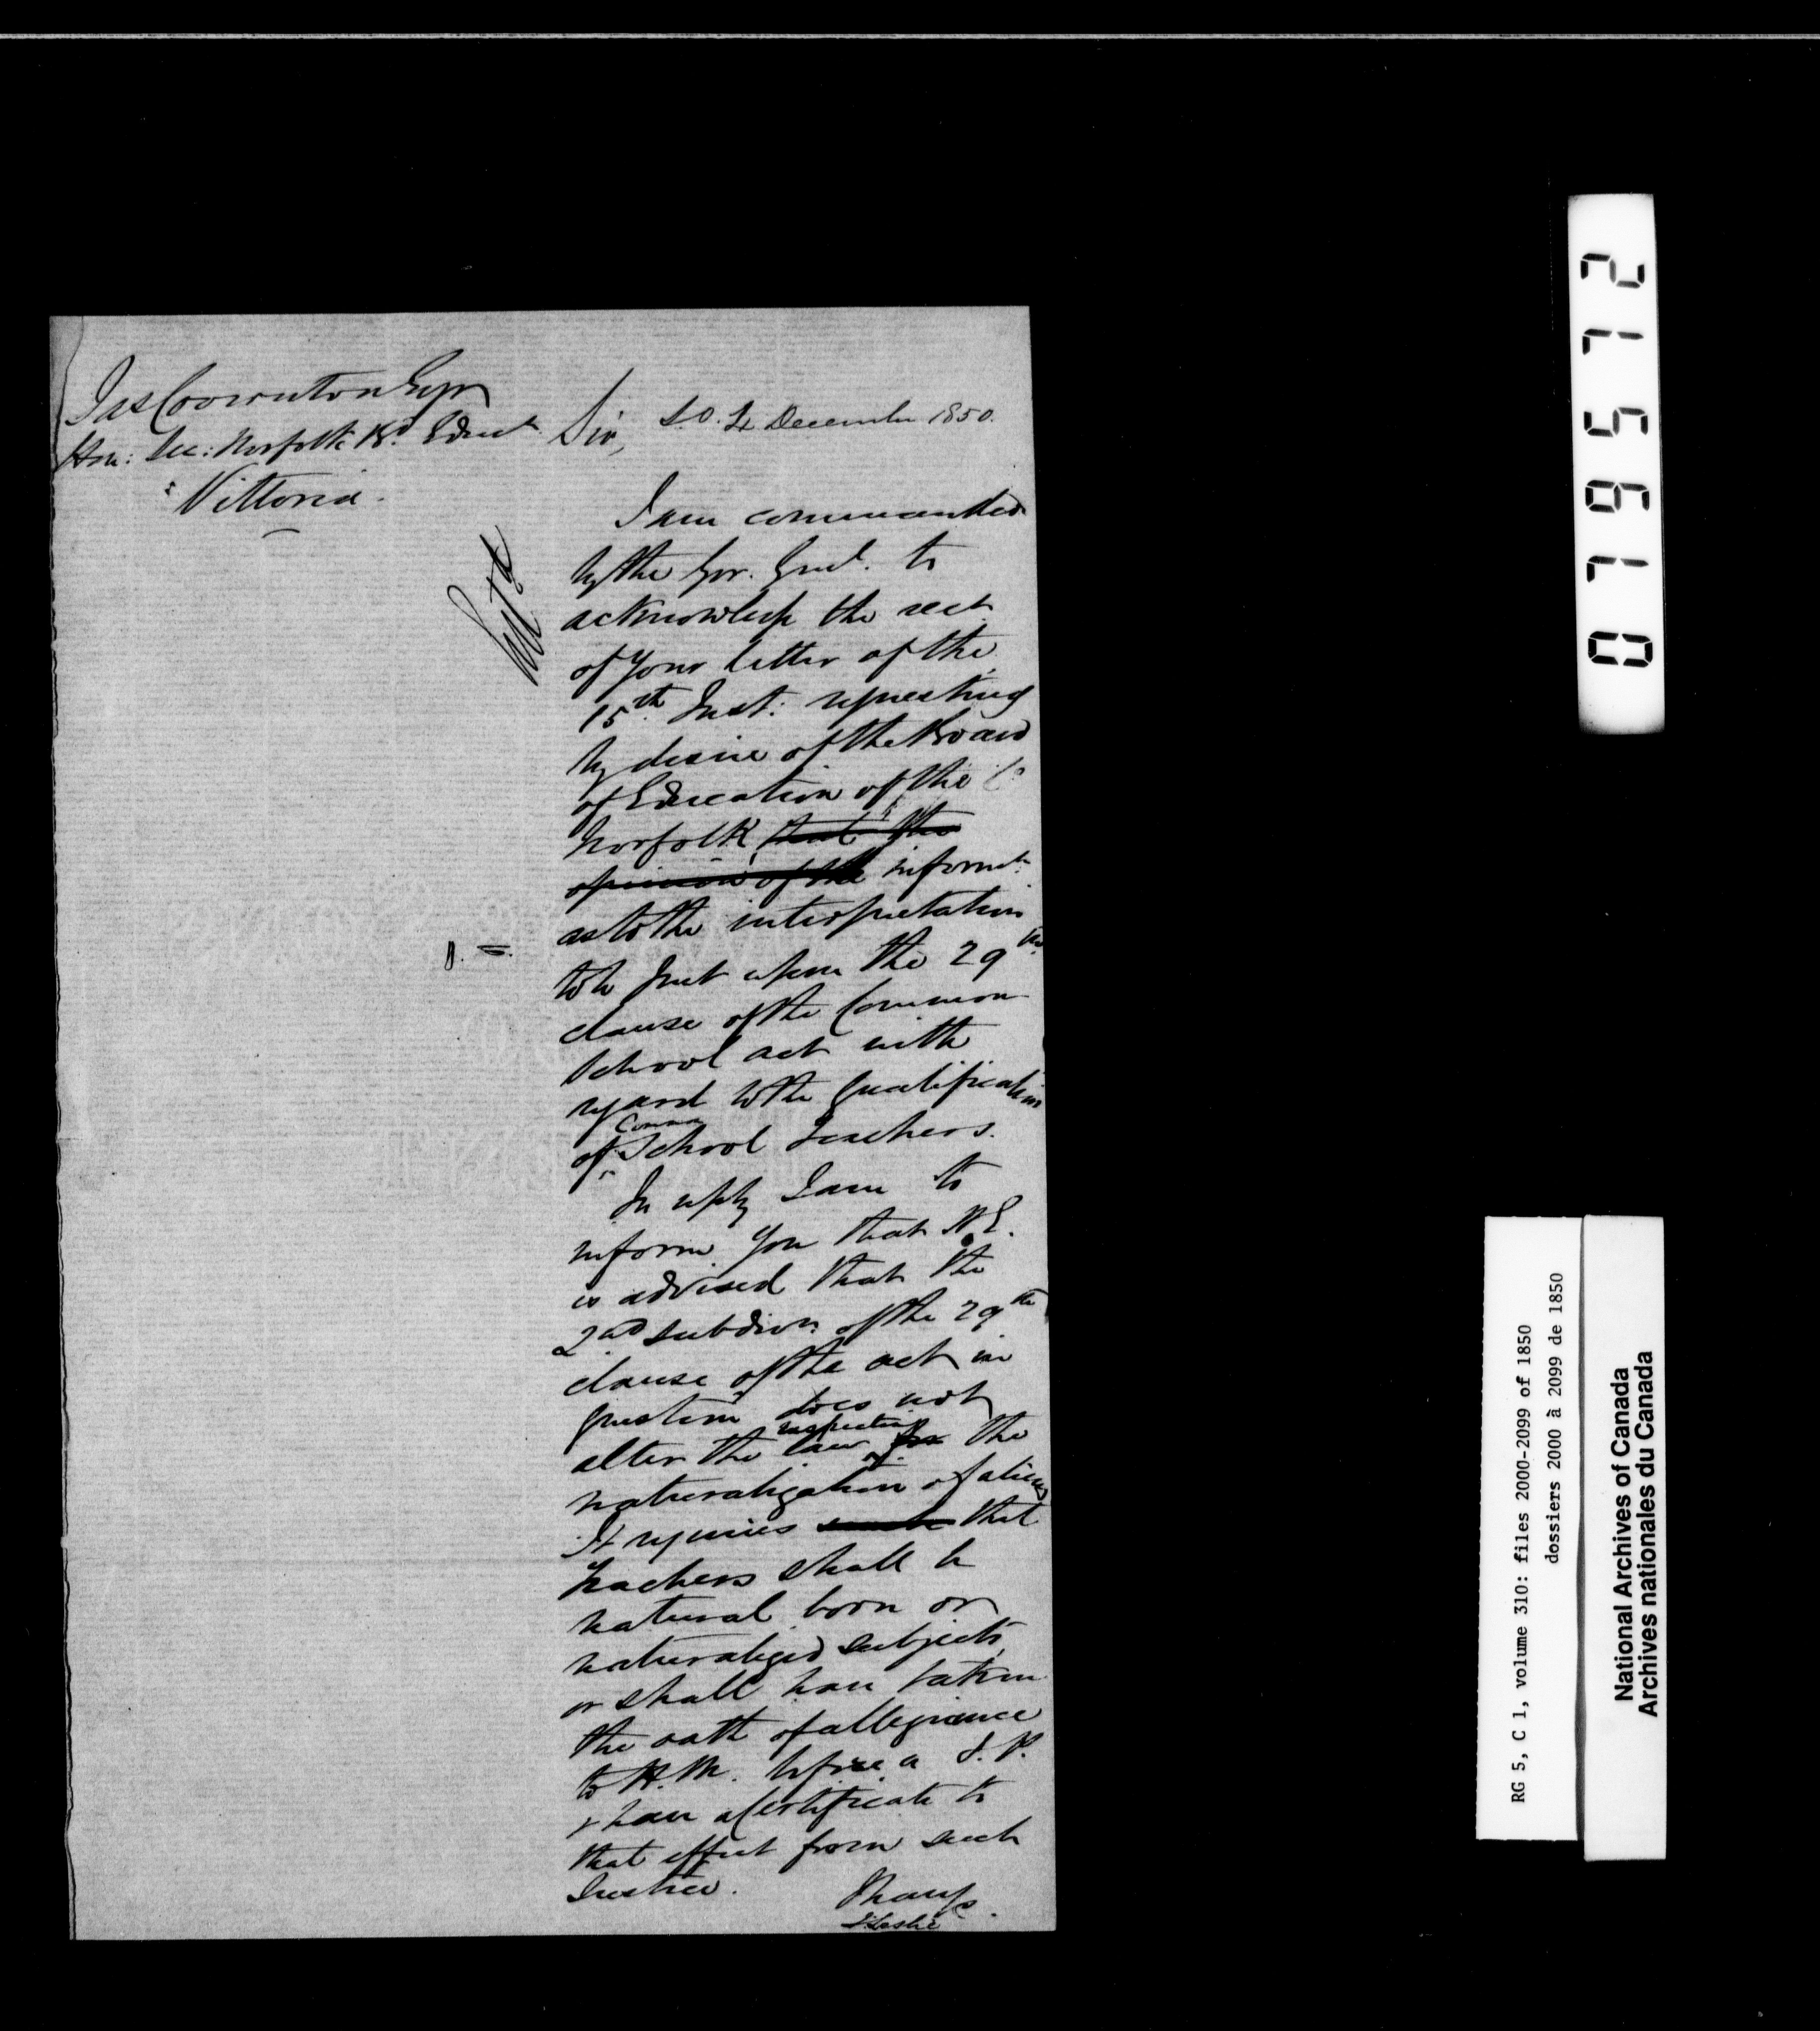 Jas Covernton Esqr
Hon: Sec: Norfolk Bd. Educt.
Vittoria.
Sir,
S.O. 24 December 1850.
I am commanded
by the Gov. Genl. to
acknowledge the rect
of your letter of the
15th Inst: requesting
by desire of the Board
of Education of the Co
Norfolk, that the
opinion of the informt.
as to the interpretation
to be put upon the 29th
clause of the Common
School act with
regard to the qualification
of Common School Teachers.
In reply I am to
inform you that H.E.
is advised that the
2nd subdivn. of the 29th
clause of the act in
question does not
alter the law respecting for the
naturalization of aliens
It requires that
teachers shall be
natural born or
naturalized subjects,
or shall have taken
the oath of allegiance
to H.M. before a J.P.
& have a Certificate to
that effect from such
Justice.
I have &c.
J Leslie
079572
RG 5, C 1, volume 310: files 2000-2099 of 1850
dossiers 2000 à 2099 de 1850
National Archives of Canada
Archives nationales du Canada